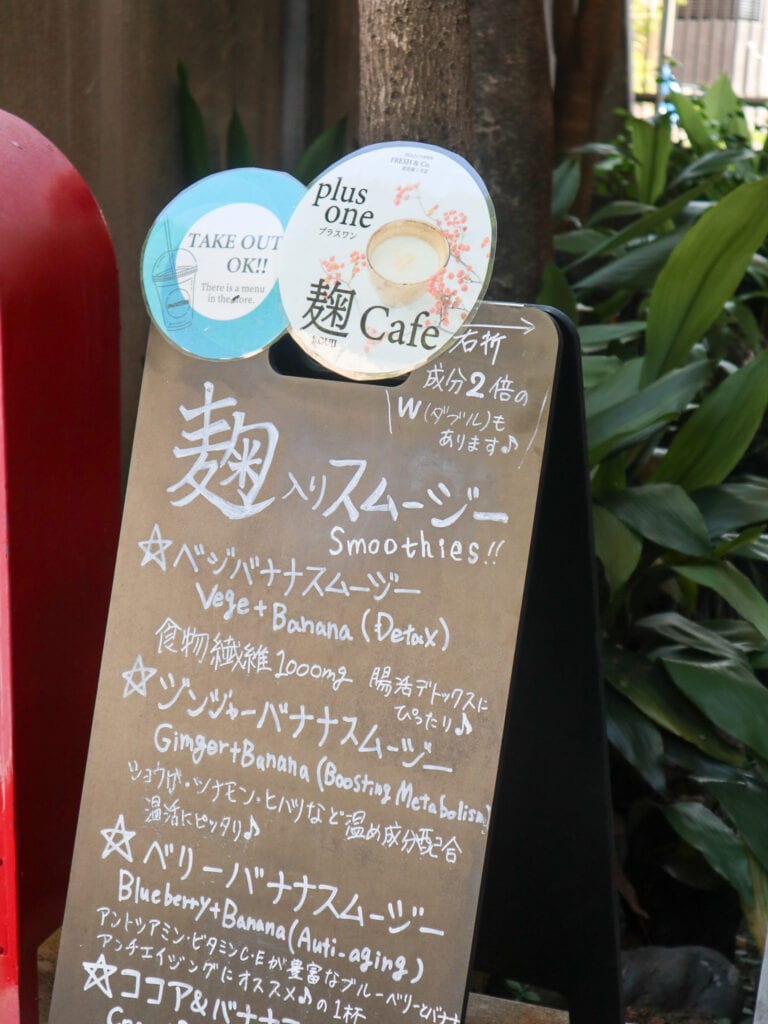 TAKE OUT
OK!!
There is a menu
in the store.
FRESH & Co.
plus
one
プラスワン
麹 Cafe
KOUJI
成分2倍の
W(ダブル)も
あります♪
麹入りスムージー
Smoothies!!
☆ベジバナナスムージー
Vege+Banana (Detox)
食物繊維1000mg 腸活デトックスに
ぴったり♪
☆ジンジャーバナナスムージー
Gimger+Banana (Boosting Metabolism)
ショウガ・シナモン・ヒハツなど温め成分配合
温活にピッタリ♪
☆ベリーバナナスムージー
Blueberry+Banana (Auti-aging)
アントシアミン・ビタミンC・Eが豊富なブルーベリーとバナナ
アンチエイジングにオススメ♪の1杯
☆ココア&バナナス